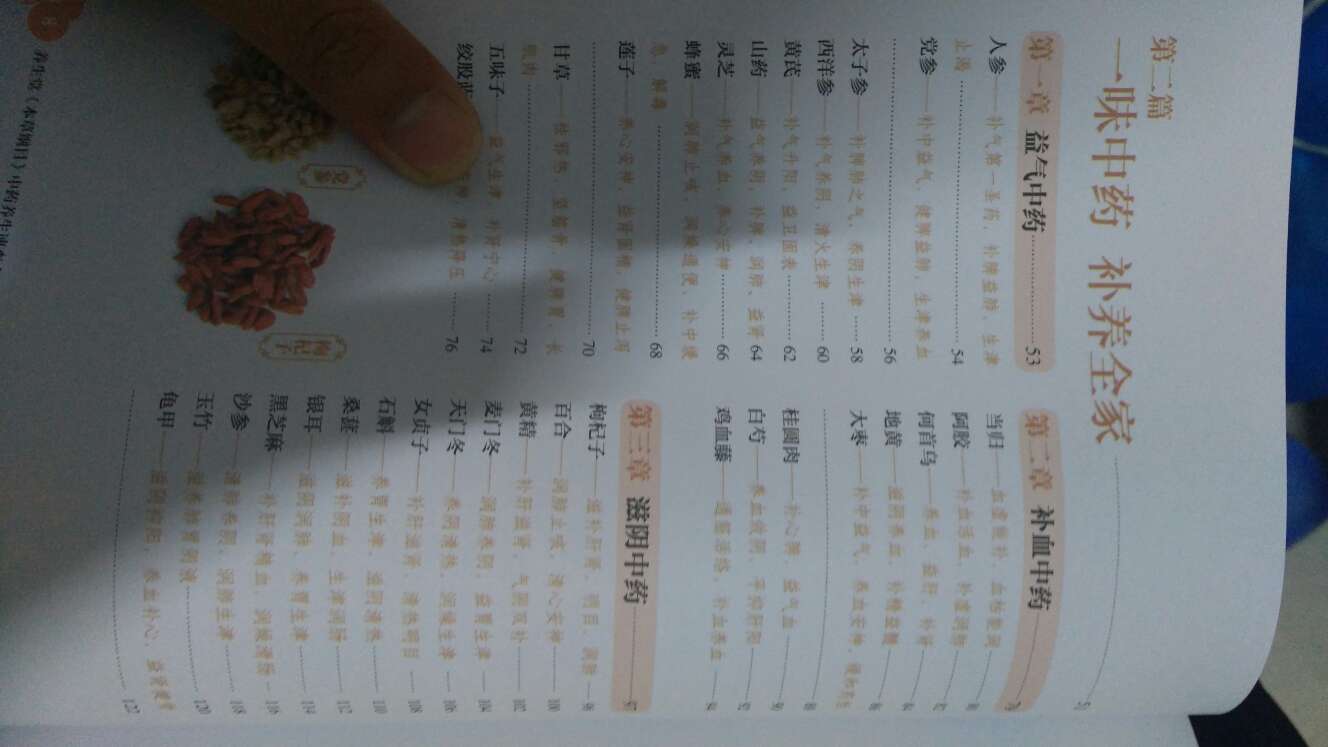 第二篇
一味中药 补养全家
第一章 益气中药……53
人参——补气第一圣药，补脾益肺，生津
止渴……54
党参——补中益气，健脾益肺，生津养血
……56
太子参——补脾肺之气，养阴生津……58
西洋参——补气养阴，清火生津……60
黄芪——补气升阳，益卫固表……62
山药——益气养阴，补脾、润肺、益肾 64
灵芝——补气养血，养心安神……66
蜂蜜——润肺止咳，润燥通便，补中缓
急，解毒……68
莲子——养心安神，益肾固精，健脾止泻
……70
甘草——祛邪热，坚筋骨，健脾胃，长
肌肉……72
五味子——益气生津，补肾宁心……74
绞股蓝 清热降压……76
第二章 补血中药
当归——血虚能补，血枯能润
阿胶——补血活血，补虚润肺
何首乌——养血，益肝，补肾
地黄——滋阴养血，补精益髓
大枣——补中益气，养血安神
桂圆肉——补心脾，益气血
白芍——养血敛阴，平抑肝阳
鸡血藤——通筋活络，补血养血
第三章 滋阴中药——97
枸杞子——滋补肝肾，明目，润肺—98
百合——润肺止咳，清心安神——100
黄精——补肝滋肾，气阴双补——102
麦门冬——润肺养阴，益胃生津—104
天门冬——养阴清热，润燥生津—106
女贞子——补肝滋肾，清热明目—108
石斛——养胃生津，滋阴清热——110
桑葚——滋补阴血，生津润肠——112
银耳——滋阴润肺，养胃生津——114
黑芝麻——补肝肾精血，润燥滑肠—116
沙参——清肺养阴，润肺生津……118
玉竹——滋养肺胃阴液……120
龟甲——滋阴潜阳，养血补心，益肾健骨
……122
党参
枸杞子
8
养生堂《本草纲目》中药养生速查